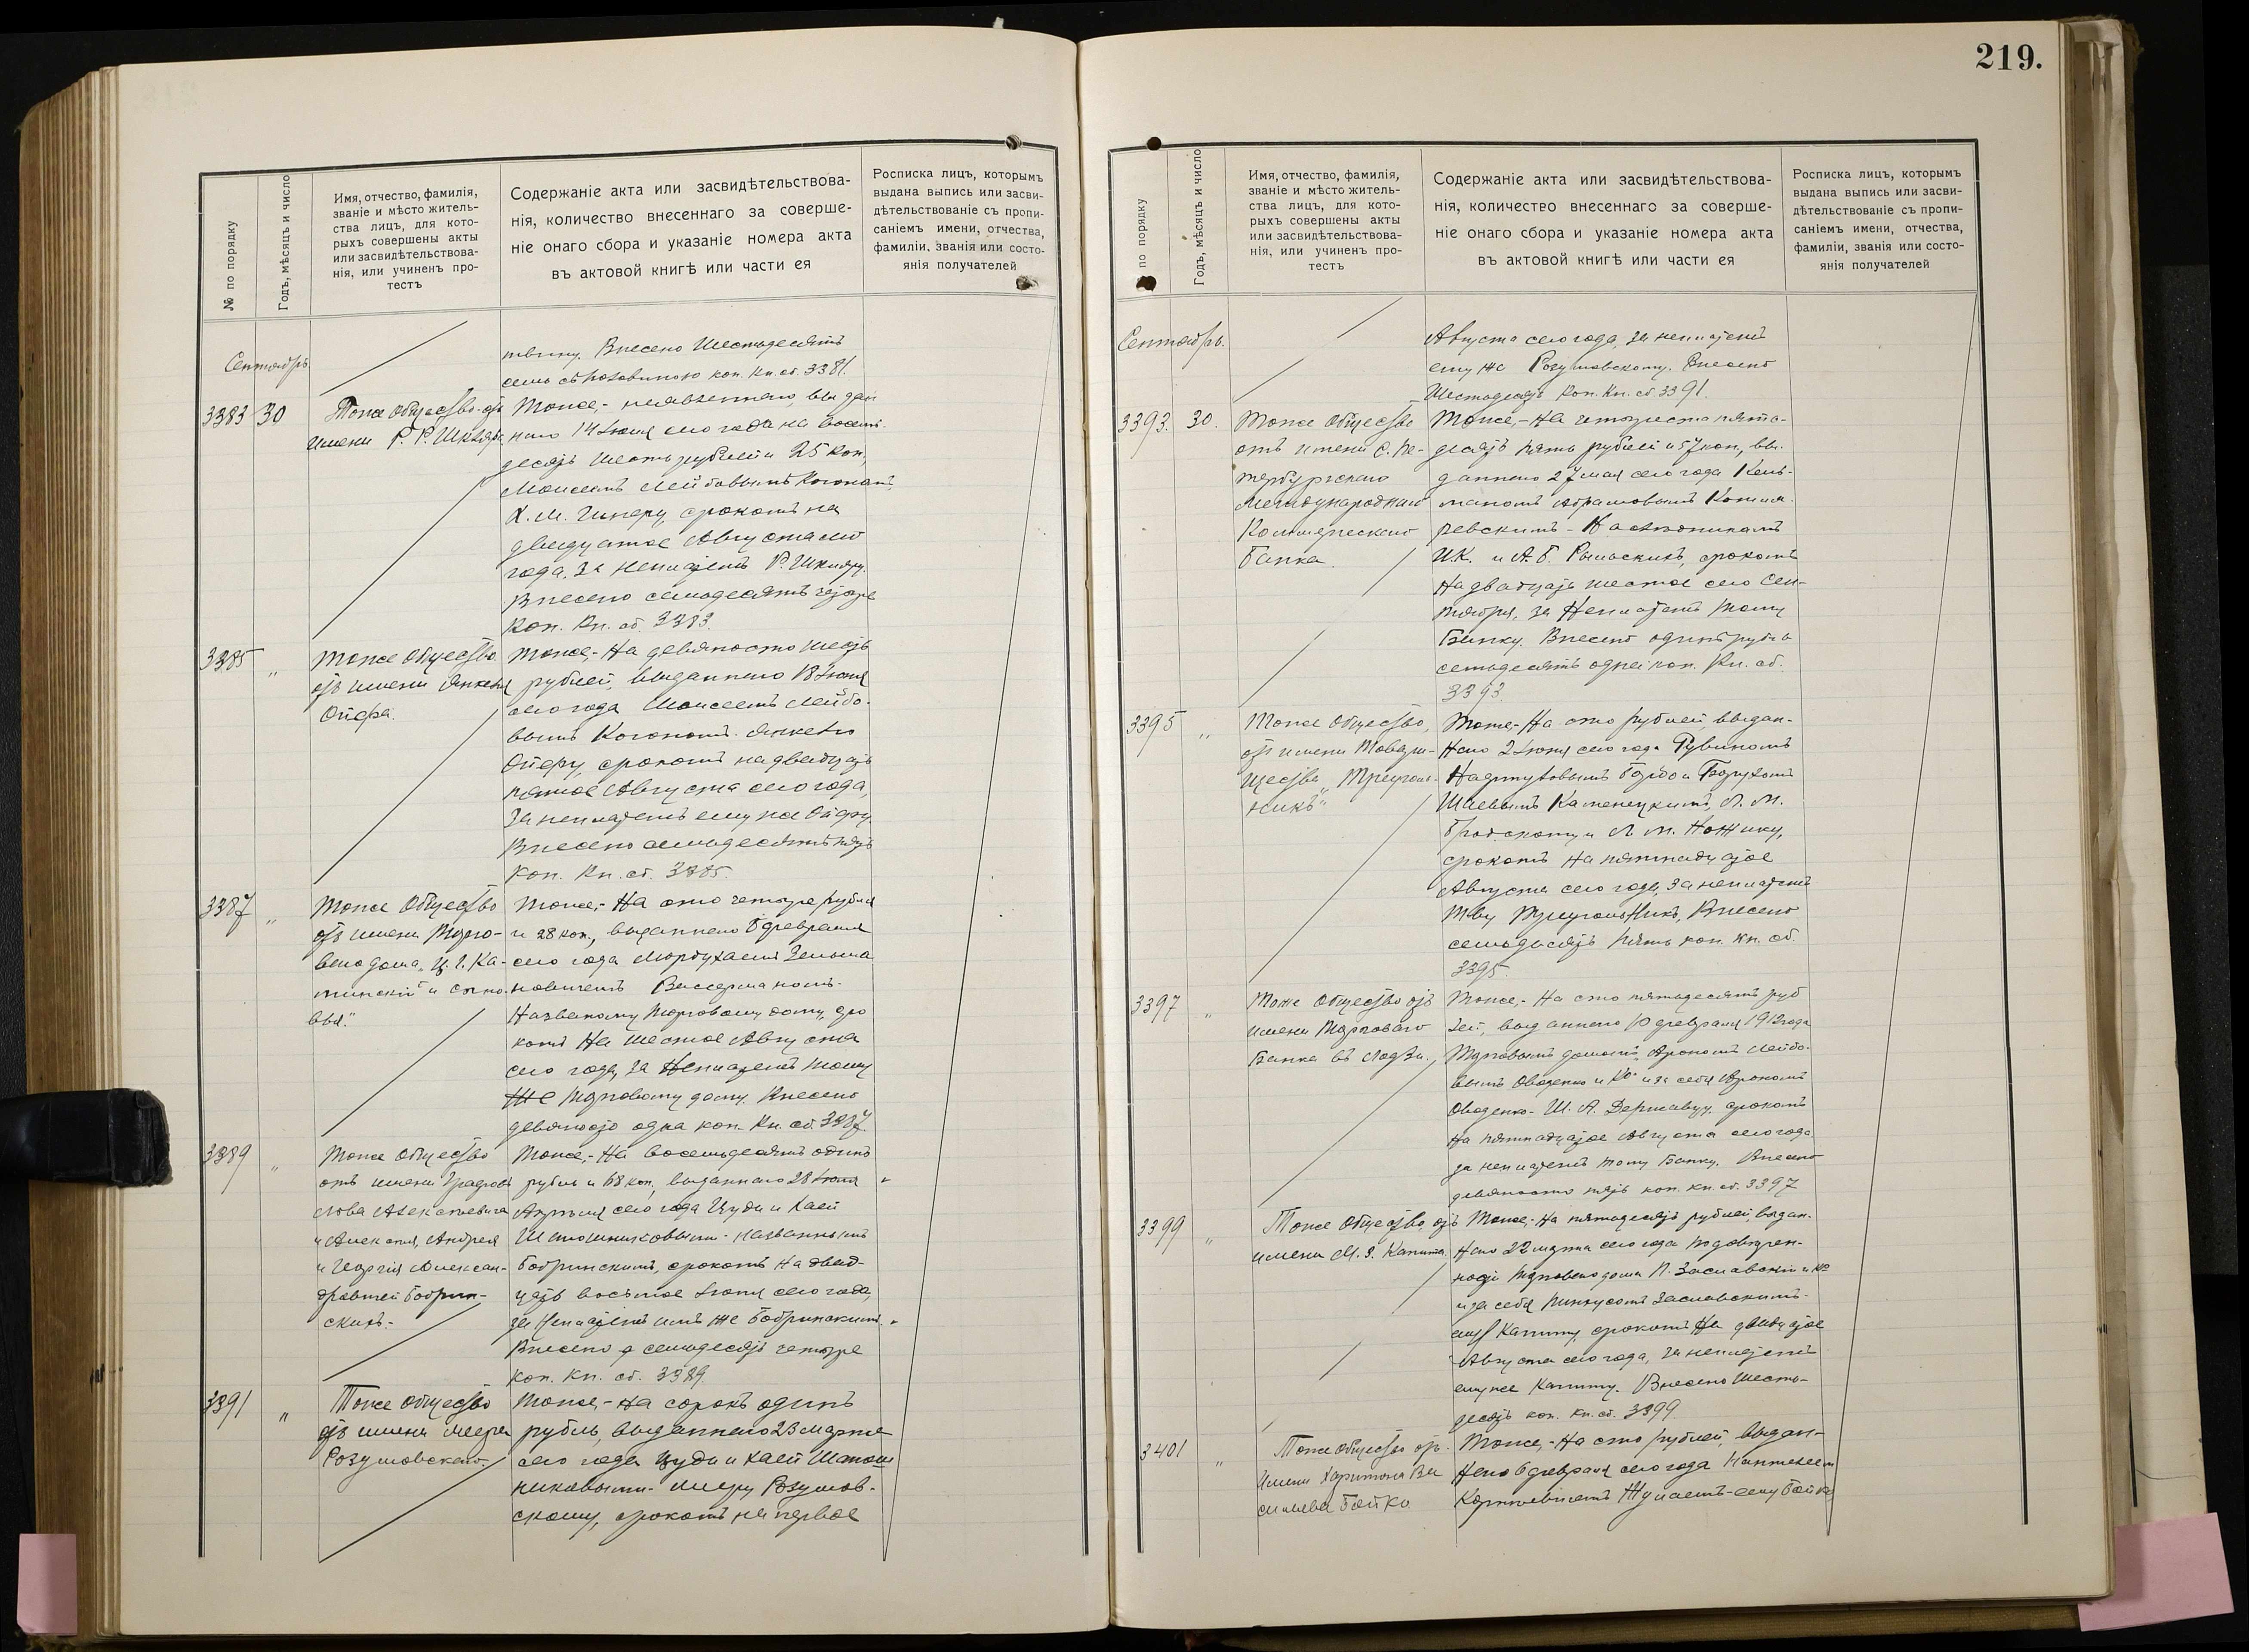 219.
№ по порядку
Годъ, мѣсяцъ и число
Имя, отчество, фамилія,
званіе и мѣсто житель-
ства лицъ, для кото-
рыхъ совершены акты
или засвидѣтельствова-
нія, или учиненъ про-
тестъ
Содержаніе акта или засвидѣтельствова-
нія, количество внесеннаго за соверше-
ніе онаго сбора и указаніе номера акта
въ актовой книгѣ или части ея
Росписка лицъ, которымъ
выдана выпись или засви-
дѣтельствованіе съ пропи-
саніемъ имени, отчества,
фамиліи, званія или состо-
янія получателей
Сентябрь.
Внесено Шестьдесятъ
семь съ половиною коп. Кн. ст. 3381.
3383 30
Тоже Общество отъ
имени Р. Р. Шкляра
Тоже,- неявленнаго, выдан
наго 14 Іюня сего года на восемь-
десятъ шесть рублей и 25 коп.,
Моисеемъ Лейбовымъ Коганомъ,
срокомъ на
двадцатое Августа сего
года, за неплатежъ Р. Шкляру.
Внесено семьдесятъ четыре
коп. Кн. ст. 3383.
3385 "
Тоже Общество
отъ имени Янкеля
Ойфра.
Тоже,- На девяносто шесть
рублей, выданнаго 18 Іюня
сего года Моисеемъ Лейбо-
вымъ Коганомъ Янкелю
Ойфру, срокомъ на двадцать
пятое Августа сего года,
за неплатежъ ему же Ойфру.
Внесено семьдесятъ пять
коп. Кн. ст. 3385.
3387 "
Тоже Общество
отъ имени Торго-
ваго дома „И. Г. Ка-
минскій и сыно-
вья."
Тоже,- На сто четыре рубля
и 28 коп., выданнаго 6 февраля
сего года Мордухаемъ Зельма
новичемъ Вассерманомъ-
Названному Торговому дому, сро
комъ На шестое Августа
сего года, за Неплатежъ тому
же Торговому дому. Внесено
девяносто одна коп. Кн. ст. 3387.
3389 "
Тоже Общество
отъ имени Графовъ
Льва Алексѣевича
и Алексѣя, Андрея
и Георгія Алексан-
дровичей Бобрин-
скихъ.-
Тоже,- На восемьдесятъ одинъ
рубль и 68 коп., выданнаго 28
Апрѣля сего года Іуды и Хаей
Шапошниковыми- названнымъ
Бобринскимъ, срокомъ На двад-
цать восьмое Іюля сего года,
за Неплатежъ имъ же Бобринскимъ.
Внесено семьдесятъ четыре
коп. Кн. ст. 3389.
3391 "
Тоже Общество
отъ имени Меера
Розумовскаго.
Тоже,- На сорокъ одинъ
рубль, выданнаго 23 Марта
сего года Іуды и Хаей Шапош
никовыми- Мееру Розумов-
скому, срокомъ на первое
№ по порядку
Годъ, мѣсяцъ и число
Имя, отчество, фамилія,
званіе и мѣсто житель-
ства лицъ, для кото-
рыхъ совершены акты
или засвидѣтельствова-
нія, или учиненъ про-
тестъ
Содержаніе акта или засвидѣтельствова-
нія, количество внесеннаго за соверше-
ніе онаго сбора и указаніе номера акта
въ актовой книгѣ или части ея
Росписка лицъ, которымъ
выдана выпись или засви-
дѣтельствованіе съ пропи-
саніемъ имени, отчества,
фамиліи, званія или состо-
янія получателей
Сентябрь.
Августа сего года, за неплатежъ
ему же Розумовскому. Внесено
Шестьдесятъ Коп. Кн. ст. 3391.
3393. 30.
Тоже Общество
отъ имени С. Пе-
тербургскаго
Международнаго
Коммерческаго
Банка.
Тоже,- На четыреста пять-
десятъ пять рублей и 57 коп., вы-
даннаго 27 мая сего года
Абрамовымъ
И.К. и А.Б. срокомъ
На двадцать шестое сего Сен-
тября, за Неплатежъ тому
Банку. Внесено одинъ рубль
семьдесятъ одна коп. Кн. ст.
3393.
3395 "
Тоже Общество,
отъ имени Товари-
щества „Треуголь-
никъ"
Тоже,- На сто рублей, выдан-
наго 2 Іюня сего года Рувиномъ
и Борухомъ
Каменецкимъ, Л. М.
Бродскому и Л. М. Ножику,
срокомъ На пятнадцатое
Августа сего года, за неплатежъ
Т-ву Треугольникъ, Внесено
семьдесятъ пять коп. Кн. ст.
3395.
3397 "
Тоже Общество отъ
имени Торговаго
Банка въ Лодзи.
Тоже,- На сто пятьдесятъ руб
лей, выданнаго 10 февраля 1912 года
Торговымъ домомъ „Арономъ Лейбо-
вымъ Оводенко и Ко" и за себя Арономъ
Оводенко- Ш. А. срокомъ
На пятнадцатое Августа сего года,
за неплатежъ тому Банку. Внесено
девяносто пять коп. Кн. ст. 3397
3399 "
Тоже Общество, отъ
имени М. З.
Тоже,- На пятьдесятъ рублей, выдан-
наго 22 марта сего года по довѣрен-
ности Торговаго дома П. Заславскій и Ко
и за себя Пинхусомъ Заславскимъ-
срокомъ На двадцатое
Августа сего года, за неплатежъ
ему же Внесено Шесть-
десятъ коп. Кн. ст. 3399.
3401 "
Тоже Общество отъ
имени Харитона Ва
сильева Бойко
Тоже,- На сто рублей, выдан-
наго 6 февраля сего года
ему Бойко,